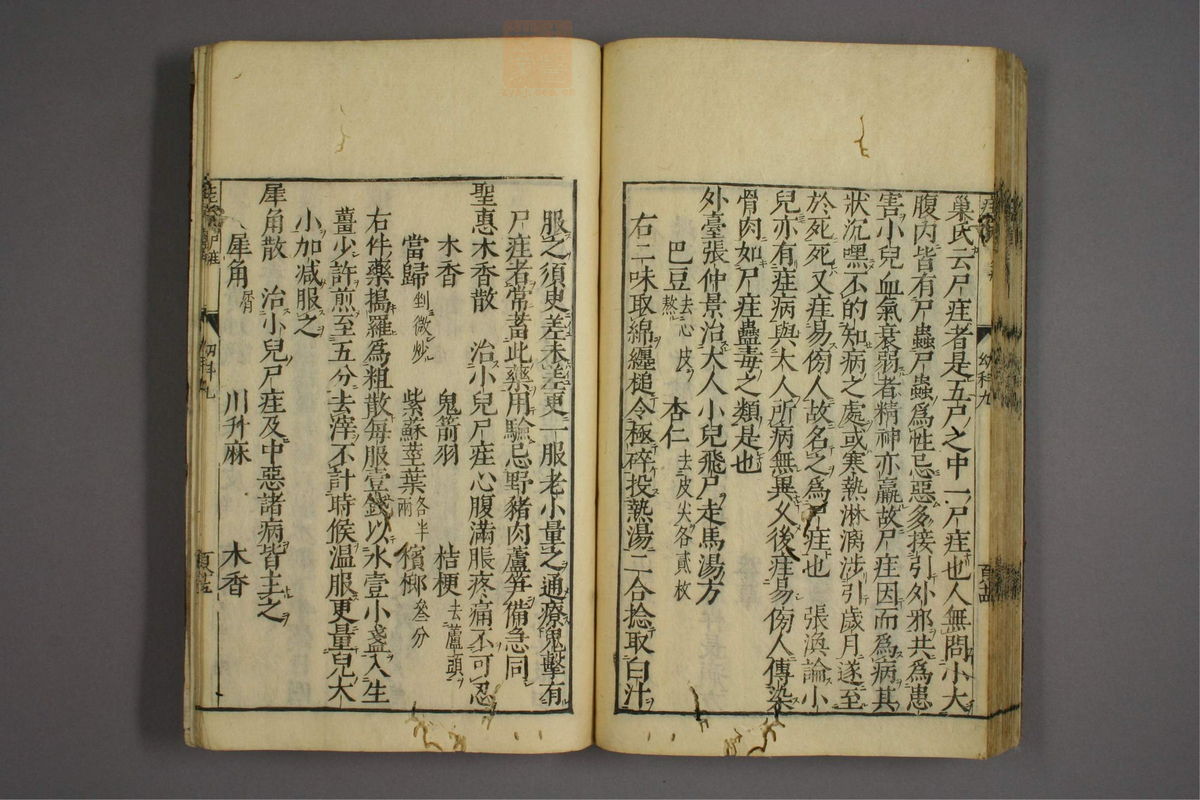 巢氏云尸疰者是五尸之中一尸疰也人無問小大
腹內皆有尸蟲尸蟲爲性忌惡多接引外邪共爲患
害小兒血氣衰弱者精神亦羸故尸疰因而爲病其
狀沉嘿不的知病之處或寒熱淋瀝涉引歲月遂至
於死死又疰易傍人故名之爲尸疰也 張渙論小
兒亦有疰病與大人所病無異父後疰易傍人傳染
骨肉如尸疰蠱毒之類是也
外臺張仲景治大人小兒飛尸走馬湯方
巴豆去心皮熬 杏仁去皮尖各貳枚
右二味取綿纏槌令極碎投熱湯二合捻取白汁
幼科九
服之須臾差未差更一服老小量之通療鬼擊有
尸疰者常蓄此藥用驗忌野豬肉蘆笋備急同
聖惠木香散 治小兒尸疰心腹滿脹疼痛不可忍
木香 鬼箭羽 桔梗去蘆頭
當歸剉微炒 紫蘇莖葉各半兩 檳榔叄分
右件藥搗羅爲粗散每服壹錢以水壹小盞入生
薑少許煎至五分去滓不計時候温服更量兒大
小加减服之
犀角散 治小兒尸疰及中惡諸病皆主之
犀角屑 川升麻 木香
幼科九